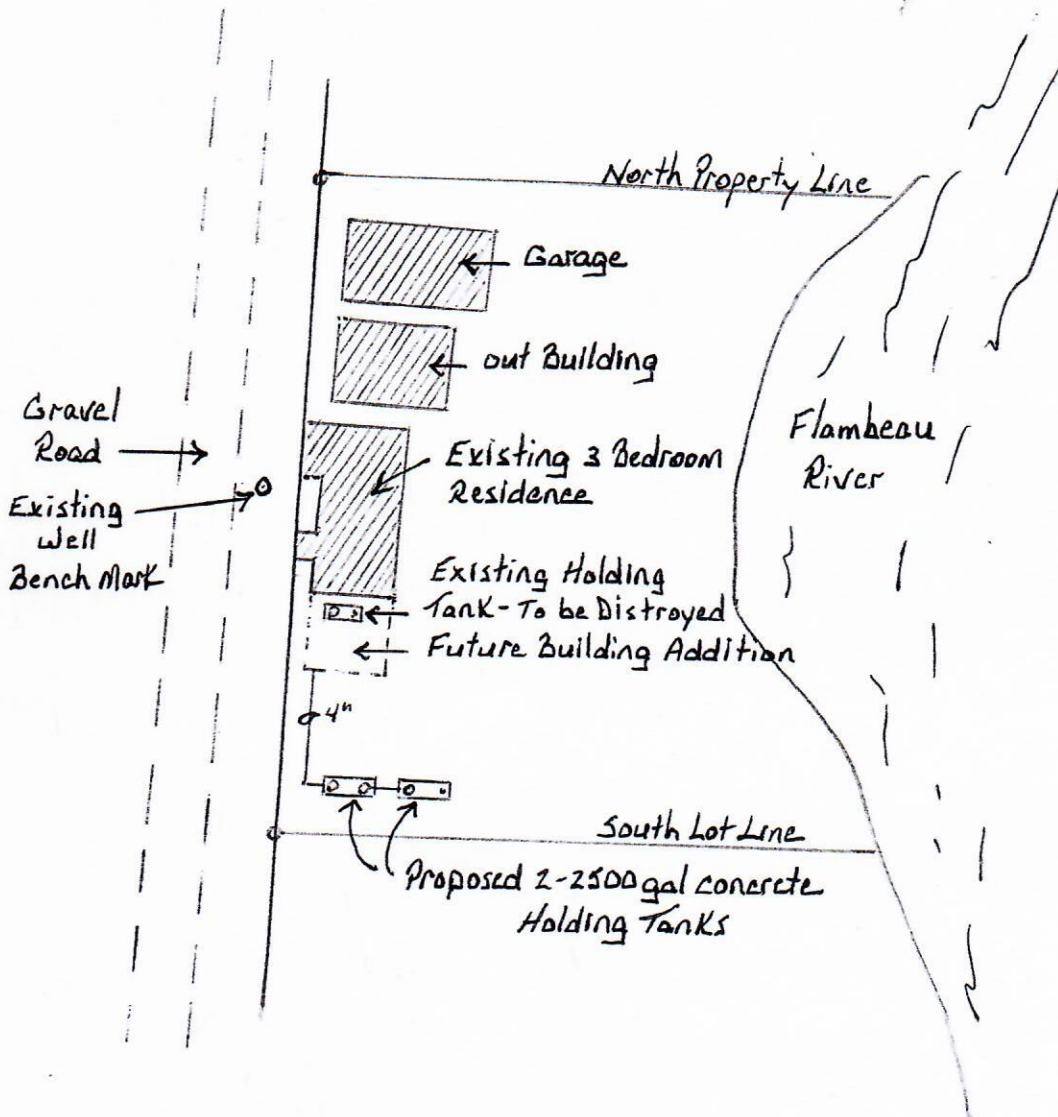 North Property Line
Garage
out Building
Gravel
Road
Existing 3 Bedroom
Residence
Flambeau
River
Existing
Well
Bench Mark
Existing Holding
Tank - To be Distroyed
Future Building Addition
4"
South Lot Line
Proposed 2-2500 gal concrete
Holding Tanks